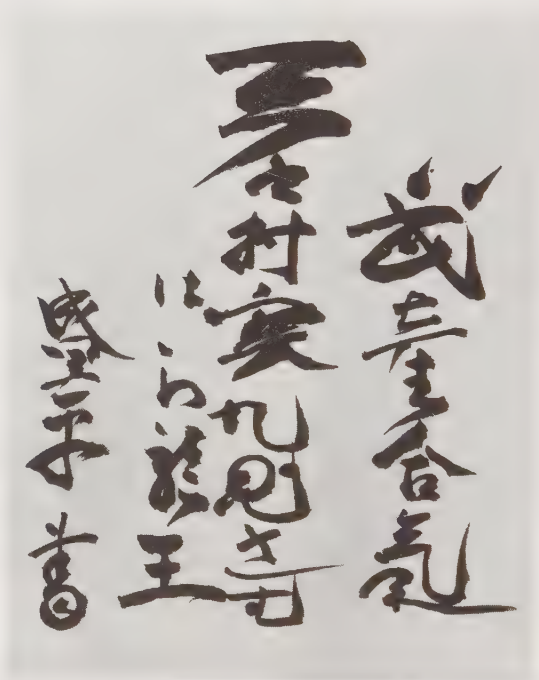 武産合氣
天之村雲九鬼さむ
はら龍王
盛平書